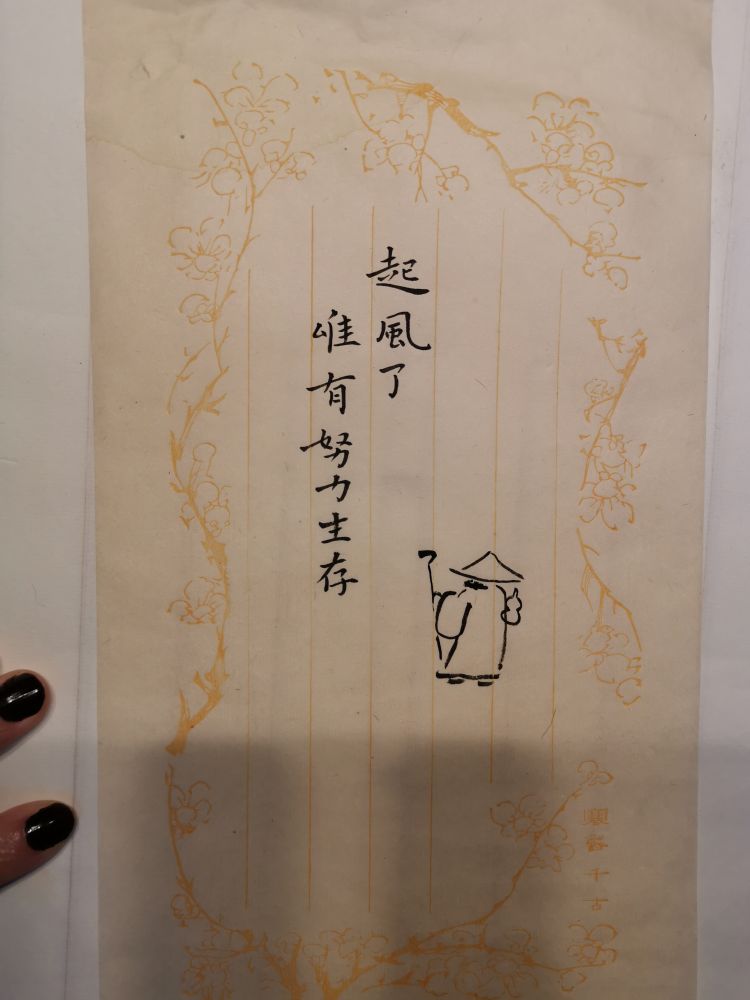 起風了
唯有努力生存
千古